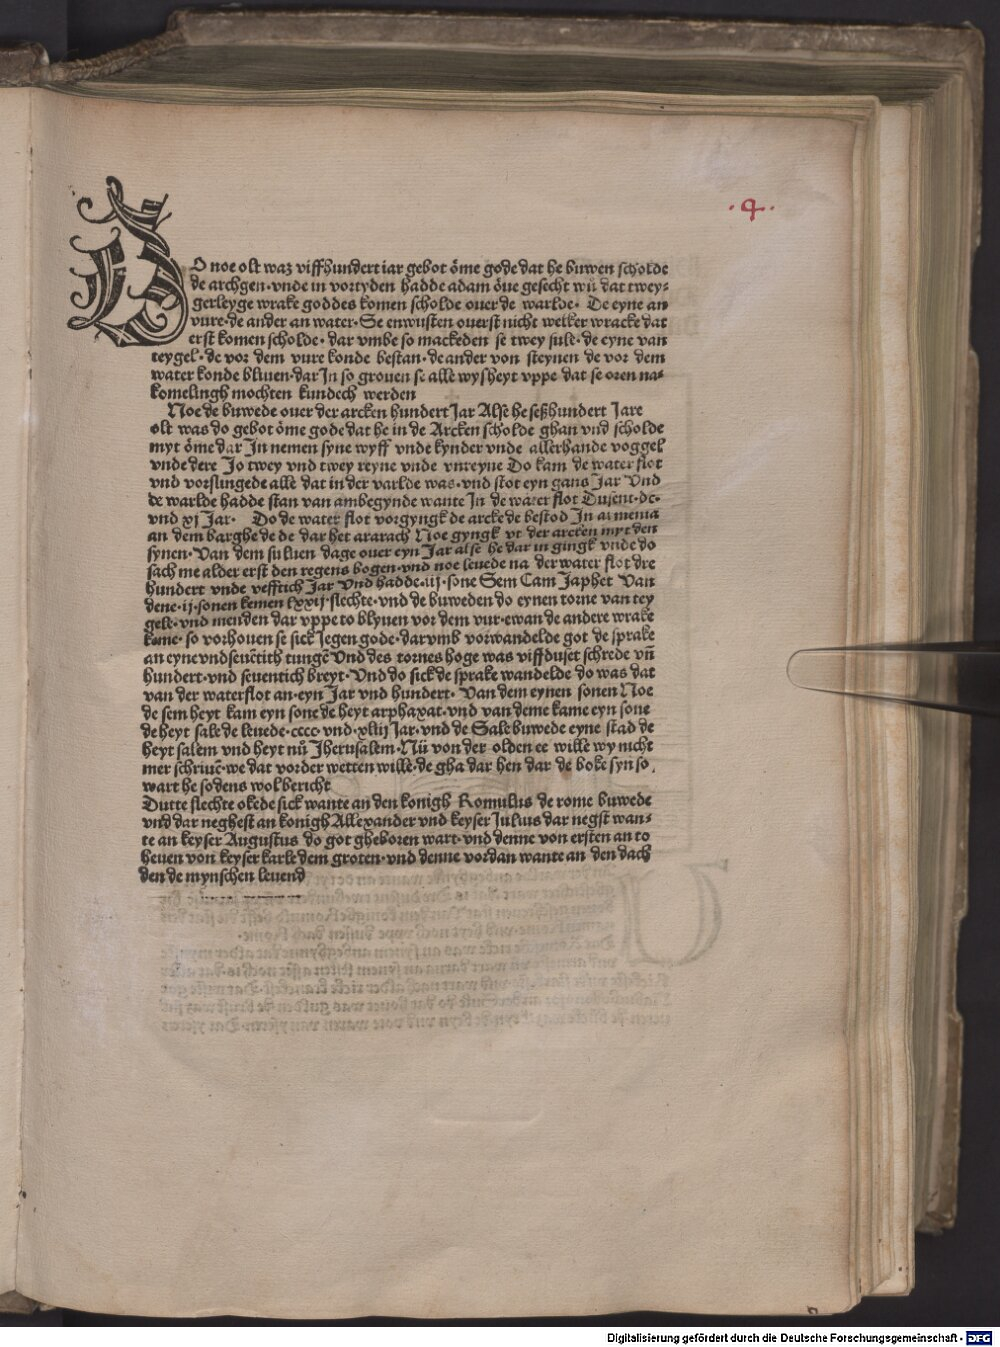 ·4·
DO noe olt waz viffhundert iar gebot ôme gode dat he buwen scholde
de archgen·vnde in vortyden hadde adam ôue gesecht wū dat twey-
gerleyge wrake goddes komen scholde ouer de warlde· De eyne an
vure·de ander an water·Se enwusten ouerst nicht welker wracke dat
erst komen scholde·dar vmbe so mackeden se twey sule·de eyne van
teygel·de vor dem vure konde bestan·de ander von steynen de vor dem
water konde bliuen·dar Jn so grouen se alle wysheyt vppe dat se oren na-
komelingh mochten kundech werden
Noe de buwede ouer der arcken hundert Jar Alse he seßhundert Jare
olt was do gebot ôme gode dat he in de Arcken scholde ghan vnd scholde
myt ôme dar Jn nemen syne wyff vnde kynder vnde allerhande voggel
vnde dere Jo twey vnd twey reyne vnde vnreyne Do kam de water flot
vnd vorslingede alle dat in der varlde was·vnd stot eyn gans Jar Vnd
de warlde hadde stan van ambegynde wante Jn de water flot Dusent·dc·
vnd xj Jar· Do de water flot vorgyngk de arcke de bestod Jn armenia
an dem barghe de de dar het ararach Noe gyngk vt der arcken myt den
synen·Van dem suluen dage ouer eyn Jar alse he dar in gingk vnde do
sach me alder erst den regens bogen·vnd noe leuede na der water flot dre
hundert vnde vefftich Jar Vnd hadde·iij·sone Sem Cam Japhet Van
dene·ij·sonen kemen lxxij·slechte·vnd de buweden do eynen torne van tey
gele·vnd menden dar vppe to blyuen vor dem vur·ewan de andere wrake
kame·so vorhouen se sick Jegen gode·darvmb vorwandelde got de sprake
an eyne vnd seuētith tungē Vnd des tornes hoge was viffduset schrede vn̄
hundert·vnd seuentich breyt·Vnd do sick de sprake wandelde do was dat
van der waterflot an·eyn Jar vnd hundert· Van dem eynen sonen Noe
de sem heyt kam eyn sone de heyt arphaxat·vnd van deme kame eyn sone
de heyt sale de leuede·cccc·vnd·xliij Jar·vnd de Sale buwede eyne stad de
heyt salem vnd heyt nů Jherusalem·Nū von der olden ee wille wy nicht
mer schriuē·we dat vorder wetten wille·de gha dar hen dar de boke syn so
wart he sodens wol bericht
Dutte slechte okede sick wante an den konigh Romulus de rome buwede
vnd dar neghest an konigh Allexander vnd keyser Julius dar negst wan-
te an keyser Augustus do got gheboren wart·vnd denne von ersten an to
heuen von keyser karle dem groten·vnd denne vordan wante an den dach
den de mynschen leuend
Digitalisierung gefördert durch die Deutsche Forschungsgemeinschaft - DFG